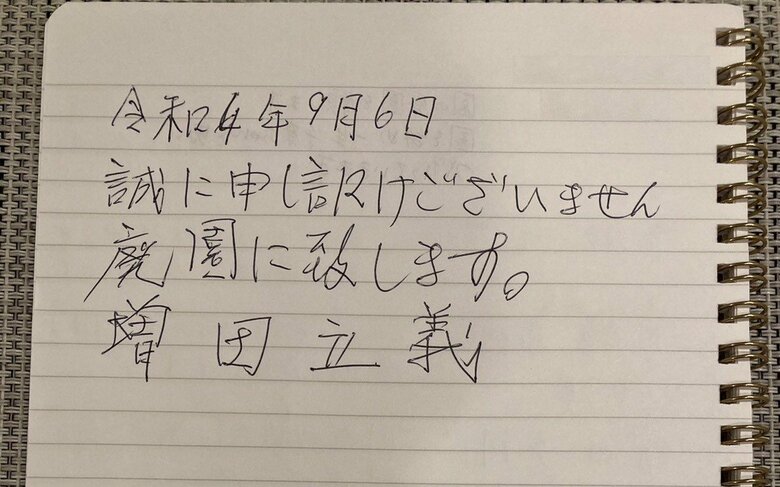 令和4年9月6日
誠に申し訳けございません
廃園に致します。
増田立義